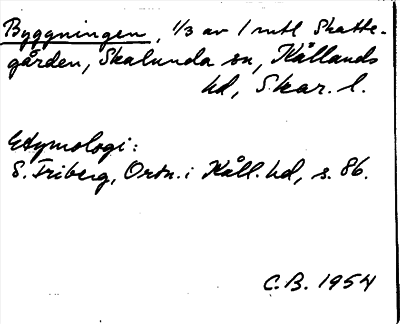 Byggningen, 1/3 av 1 mtl Skatte-
gården, Skalunda sn, Kållands
hd, Skar. l.
Etymologi:
S. Friberg, Ortn. i Kåll. hd, s. 86.
C.B. 1954